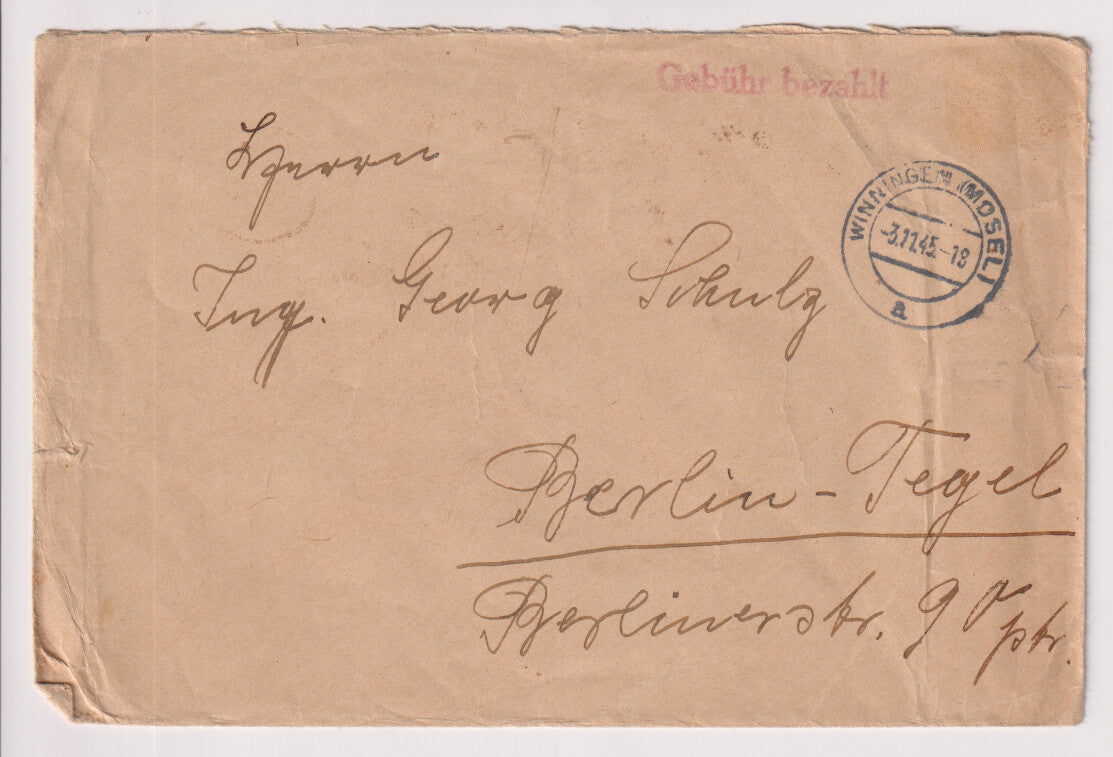 Gebühr bezahlt
WINNINGEN (MOSEL)
-3.11.45.-18
a
Herrn
Ing. Georg Schulz
Berlin-Tegel
Berlinerstr. 90 ptr.